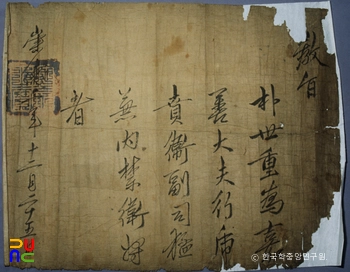 敎旨
朴世重為嘉
善大夫行虎
賁衛副司猛
兼內禁衛將
者
崇 年十二月二十五
ⓒ 한국학중앙연구원